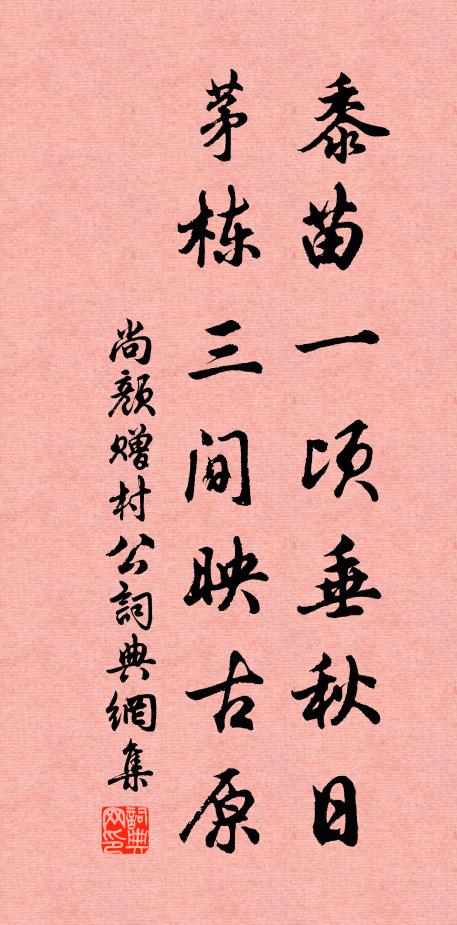 黍苗一顷垂秋日
茅栋三间映古原
尚颜赠村公詞典網集
詞典
网印